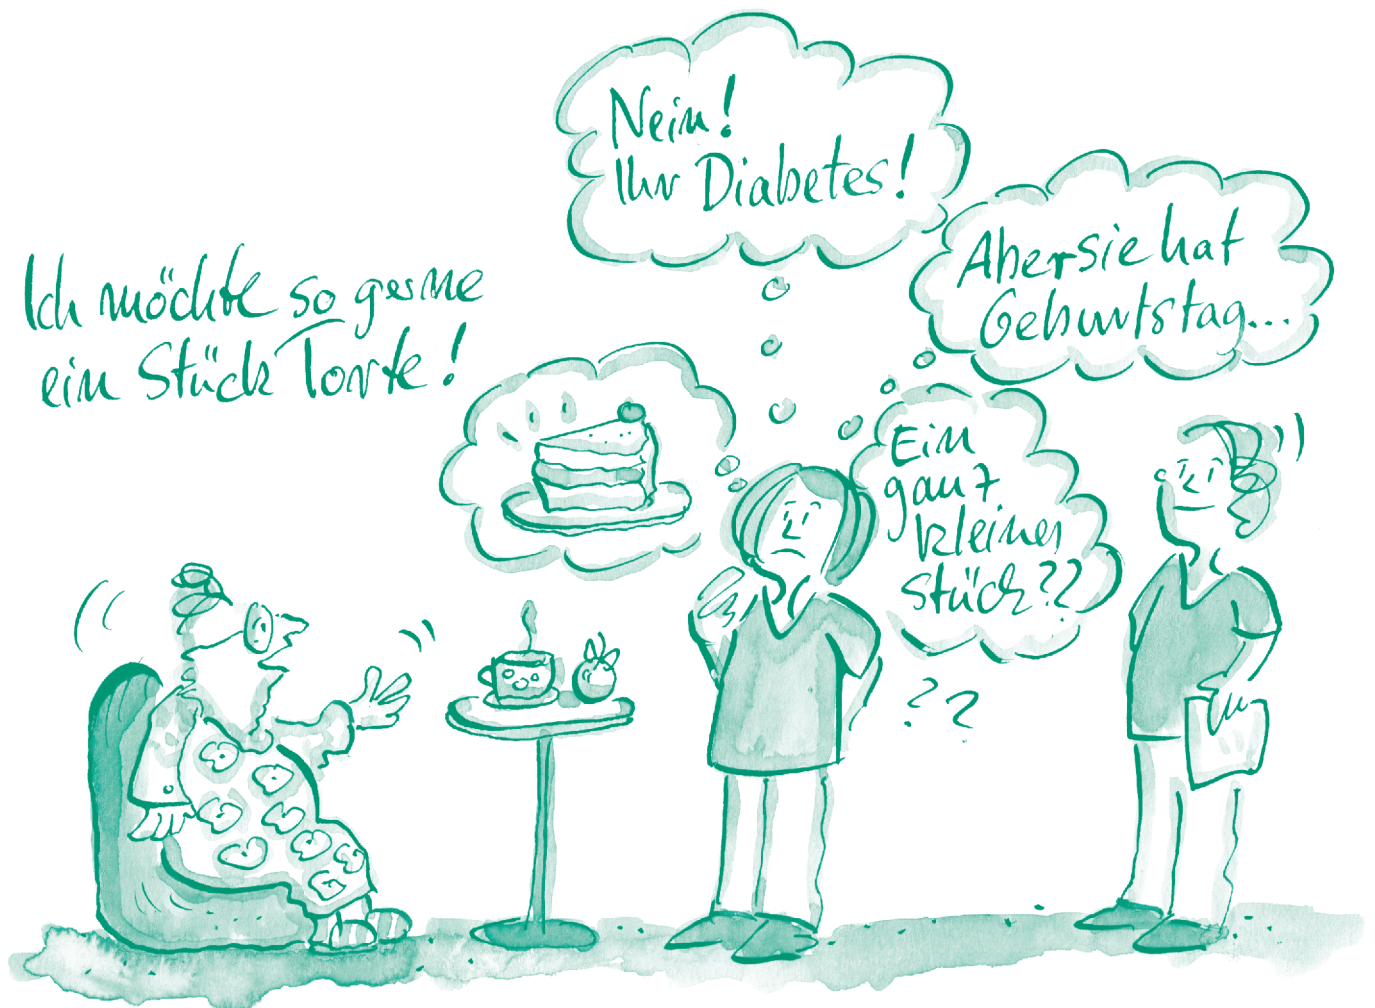 Ich möchte so gerne
ein Stück Torte!
Nein!
Ihr Diabetes!
Aber sie hat
Geburtstag...
Ein
ganz
kleines
Stück??
??